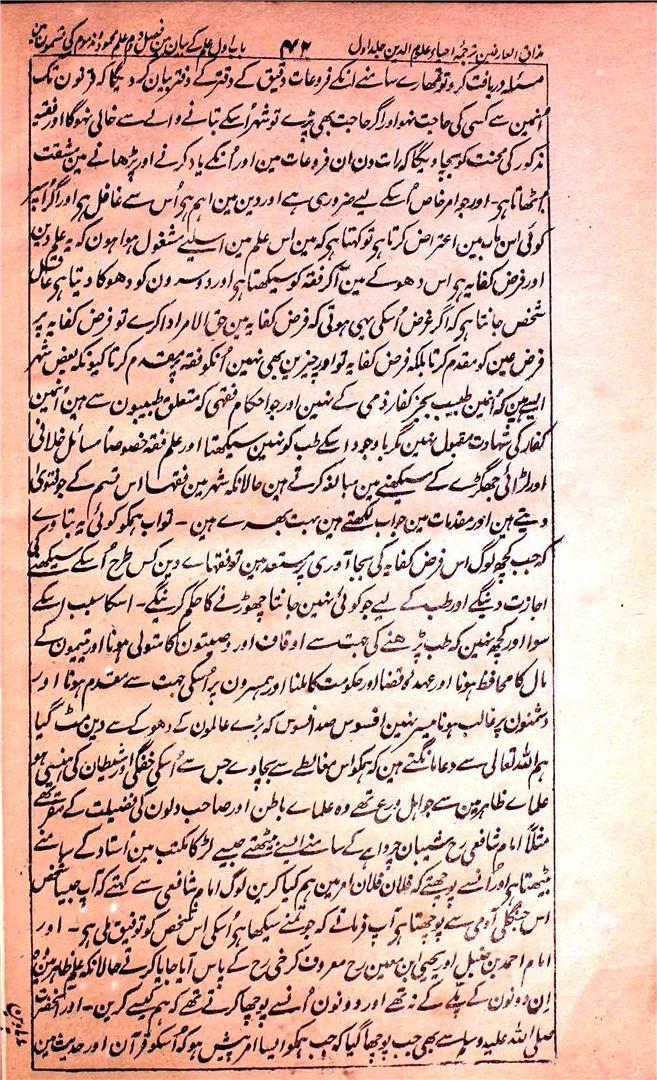 مذاق العارفین ترجمۂ احیاء علوم الدین جلد اول ۴۲ باب اول علم کے بیان مین فصل دوم علم محمود اور مذموم کی قسمون مین
مسئلہ دریافت کرو تو تمھارے سامنے انکے فروعات دقیق کے دفتر کے دفتر بیان کر دیگا کہ قرنون تک
اُنمین سے کسی کی حاجت نہو اور اگر حاجت بھی پڑے تو شہر اُسکے بتانے والے سے خالی نہوگا اور فقیہ
مذکور کی محنت کو بچاویگا کہ رات دن ان فروعات مین اور اُنکے یاد کرنے اور پڑھانے مین مشقت
اُٹھاتا ہو۔ اور جو امر خاص اُسکے لیے ضروری ہے اور دین مین اہم ہو اُس سے غافل ہو اور اگر اُسپر
کوئی اس باب مین اعتراض کرتا ہو تو کہتا ہو کہ مین اس علم مین اسلیے مشغول ہوا ہون کہ یہ علم دین
اور فرض کفایہ ہو اس دھوکے مین آکر فقہ کو سیکھتا ہو اور دوسرون کو دھوکا دیتا ہو عاقل
شخص جانتا ہو کہ اگر غرض اُسکی یہی ہوتی کہ فرض کفایہ مین حق الامر ادا کرے تو فرض کفایہ پر
فرض عین کو مقدم کرتا بلکہ فرض کفایہ تو اور چیزین بھی ہین اُنکو فقہ پر مقدم کرتا کیونکہ بعض شہر
ایسے ہین کہ اُنمین طبیب بجز کفار ذمی کے نہین اور جو احکام فقہی کہ متعلق طبیبون سے ہین اُنمین
کفار کی شہادت مقبول نہین مگر باوجود اسکے طب کو نہین سیکھتا اور علم فقہ خصوصاً مسائل خلافی
اور لڑائی جھگڑے کے سیکھنے مین مبالغہ کرتے ہین حالانکہ شہر مین فقہا اس قسم کے جو فتویٰ
دیتے ہین اور مقدمات مین جواب لکھتے ہین بہت بھرے ہین۔ تو اب ہمکو کوئی یہ بتاوے
کہ جب کچھ لوگ اس فرض کفایہ کی بجا آوری پر مستعد ہین تو فقہاے دین کس طرح اُسکے سیکھنے کی
اجازت دینگے اور طب کے لیے جو کوئی نہین جانتا چھوڑنے کا حکم کرینگے۔ اسکا سبب اسکے
سوا اور کچھ نہین کہ طب پڑھنے کی جہت سے اوقاف اور وصیتون کا متولی ہونا اور یتیمون کے
مال کا محافظ ہونا اور عہدۂ قضا اور حکومت کا ملنا اور ہمسرون پر اُسکی جہت سے مقدم ہونا اور
دشمنون پر غالب ہونا میسر نہین افسوس صد افسوس کہ بڑے عالمون کے دھوکے سے دین مٹ گیا
ہم اللہ تعالی سے دعا مانگتے ہین کہ ہمکو اس مغالطے سے بچاوے جس سے اُسکی خفگی اور شیطان کی ہنسی ہو
علماے ظاہر مین سے جو اہل ورع تھے وہ علماے باطن اور صاحب دلون کی فضیلت کے مقر تھے
مثلاً امام شافعی رح شیبان چرواہے کے سامنے ایسے بیٹھتے جیسے لڑکا مکتب مین اُستاد کے سامنے
بیٹھتا ہو اور اُنسے پوچھتے کہ فلان فلان امر مین ہم کیا کرین لوگ امام شافعی سے کہتے کہ آپ جیسا شخص
اس جنگلی آدمی سے پوچھتا ہو آپ فرماتے کہ جو تمنے سیکھا ہو اُسکی اس شخص کو توفیق ملی ہو۔ اور
امام احمد بن حنبل اور یحیی ابن معین رح معروف کرخی رح کے پاس آیا جایا کرتے حالانکہ علم ظاہر مین وہ
ان دونون کے پلے کے نہ تھے اور دونون اُنسے پوچھا کرتے تھے کہ ہم کیسے کرین۔ اور آنحضرت
صلی اللہ علیہ وسلم سے بھی جب پوچھا گیا کہ جب ہمکو ایسا امر پیش ہو کہ اُسکو قرآن اور حدیث مین